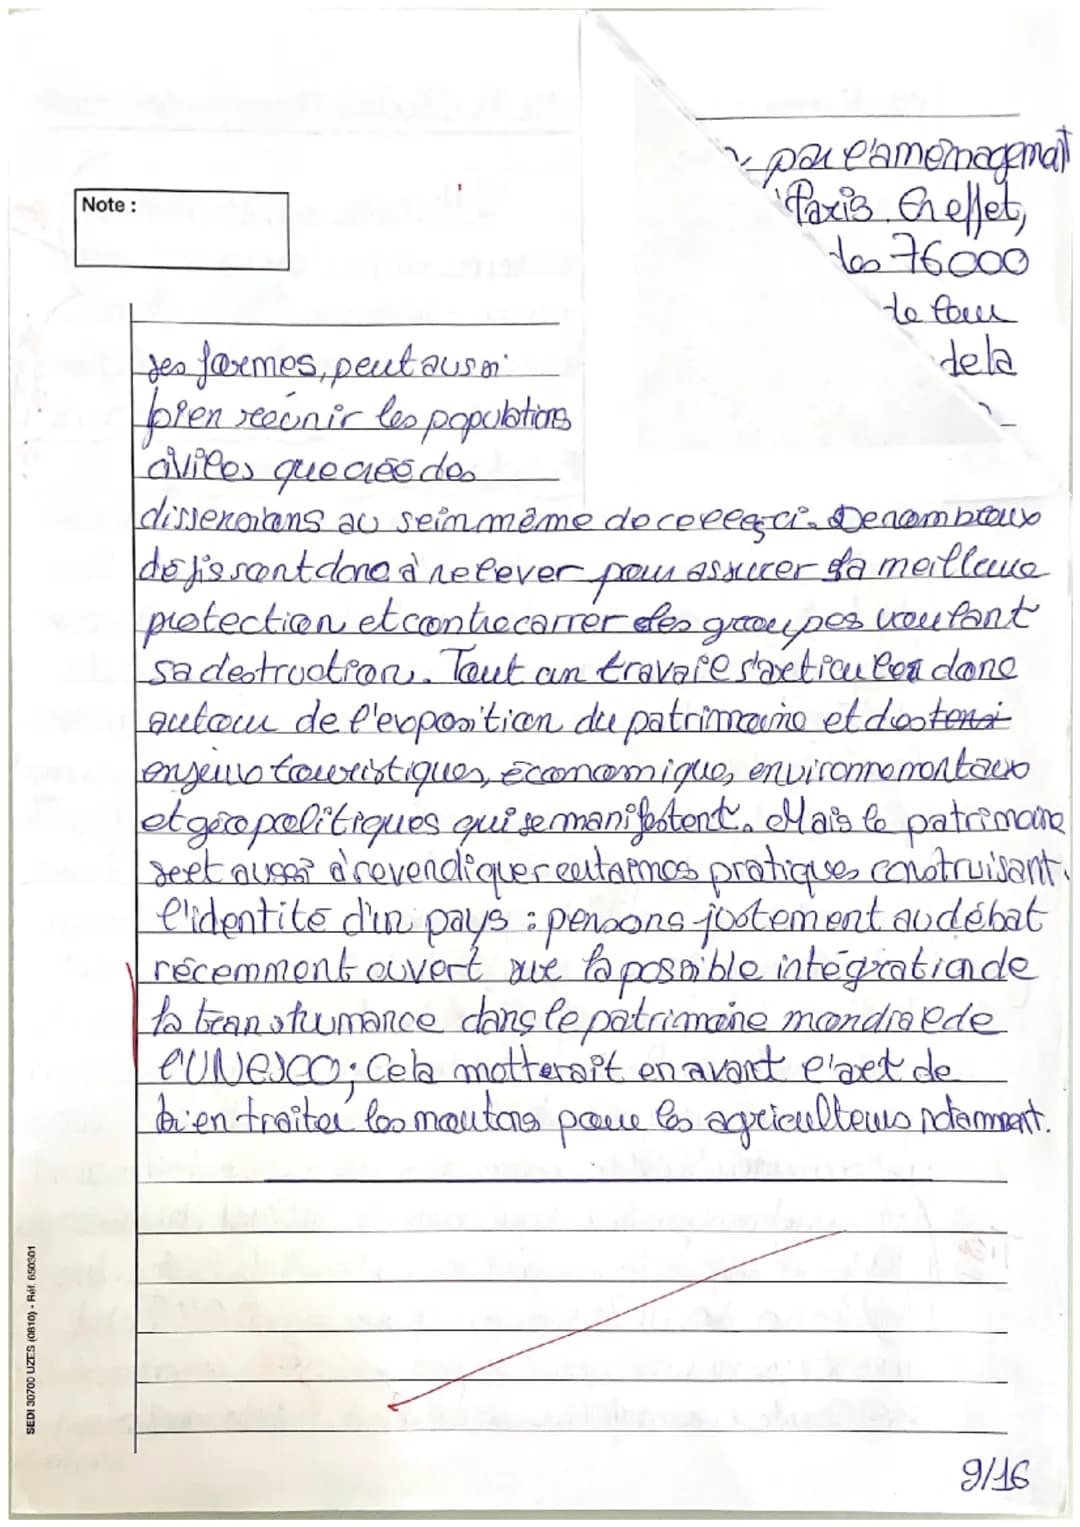 par l'aménagemat
Paris. En effet,
des 76000
de tour
de la
Note :
ses formes, peut aussi
bien réunir les populations
civiles que créé des
dissensions au sein même de celles-ci. De nombreux
défis sont donc à relever pour assurer sa meilleure
protection et contrecarrer des groupes voulant
sa destruction. Tout un travail s'articuler donc
autour de l'exposition du patrimoine et des tensi
enjeux touristiques, économiques, environnementaux
et géopolitiques qui se manifestent. Mais le patrimoine
sert aussi à revendiquer certaines pratiques construisant
l'identité d'un pays : pensons justement au débat
récemment ouvert sur la possible intégration de
la transhumance dans le patrimoine mondial de
l'UNESCO ; Cela metterait en avant l'art de
bien traiter les moutons pour les agriculteurs notamment.
SEDI 30700 UZES (0810) - Réf. 650301
9/16